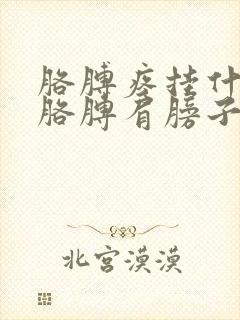 胳膊疼挂什
胳膊肩膀子
北宫漠漠